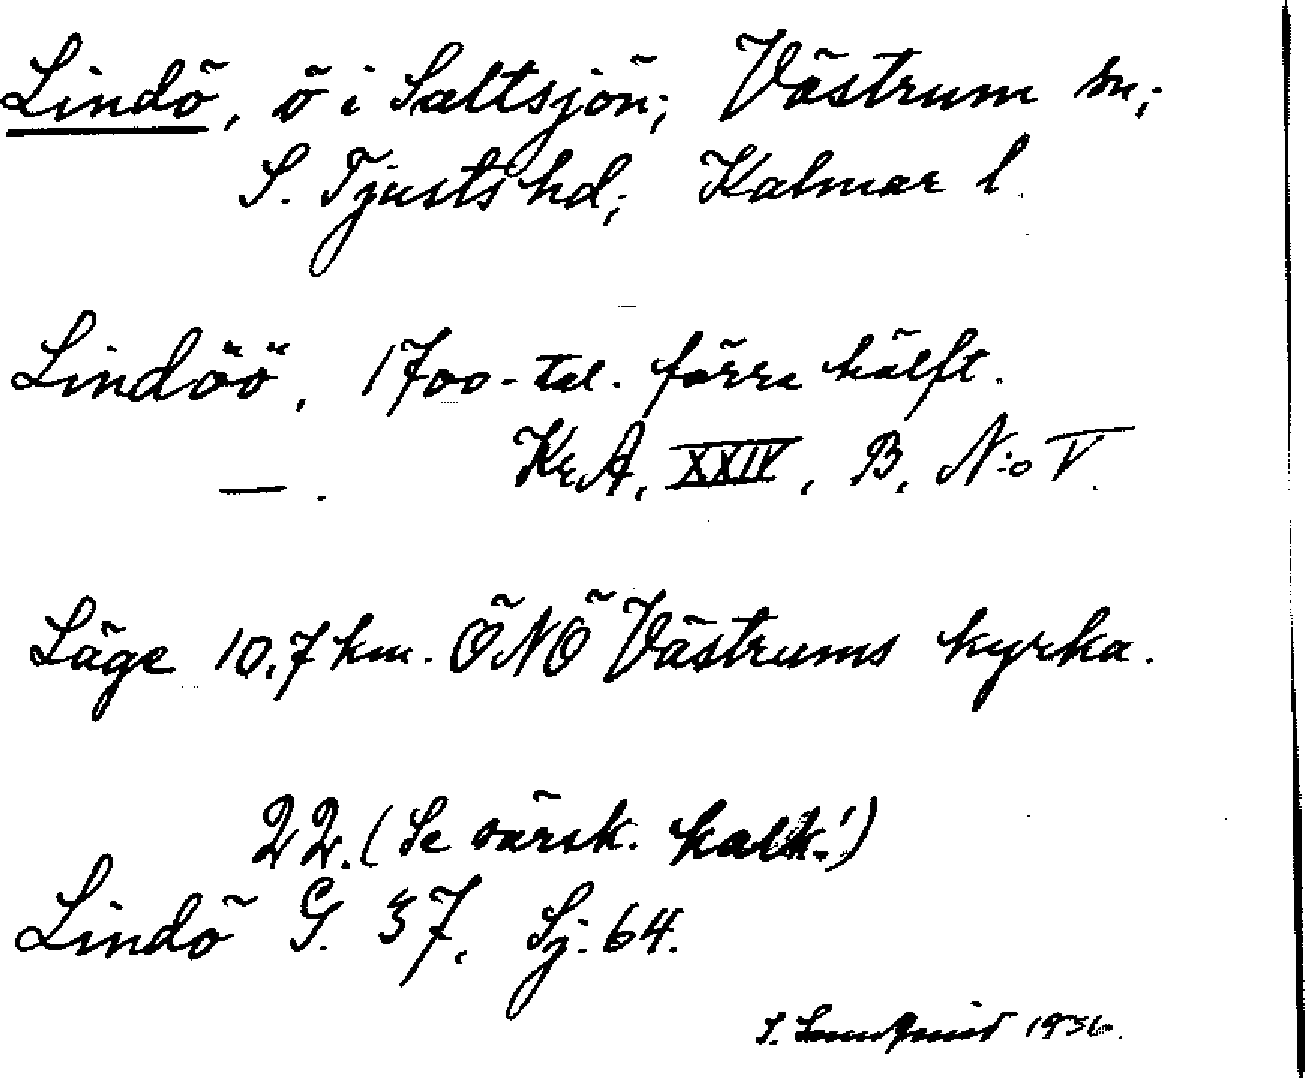 Lindö, ö i Saltsjön; Västrum sn;
S. Tjusts hd; Kalmar l.
Lindöö, 1700-tal. förra hälft.
— . KrA, XXIV, B, N:o V.
Läge 10,7 km. ÖNÖ Västrums kyrka.
22. (Se särsk. kalk.!)
Lindö G. 37, Sj. 64.
1936.